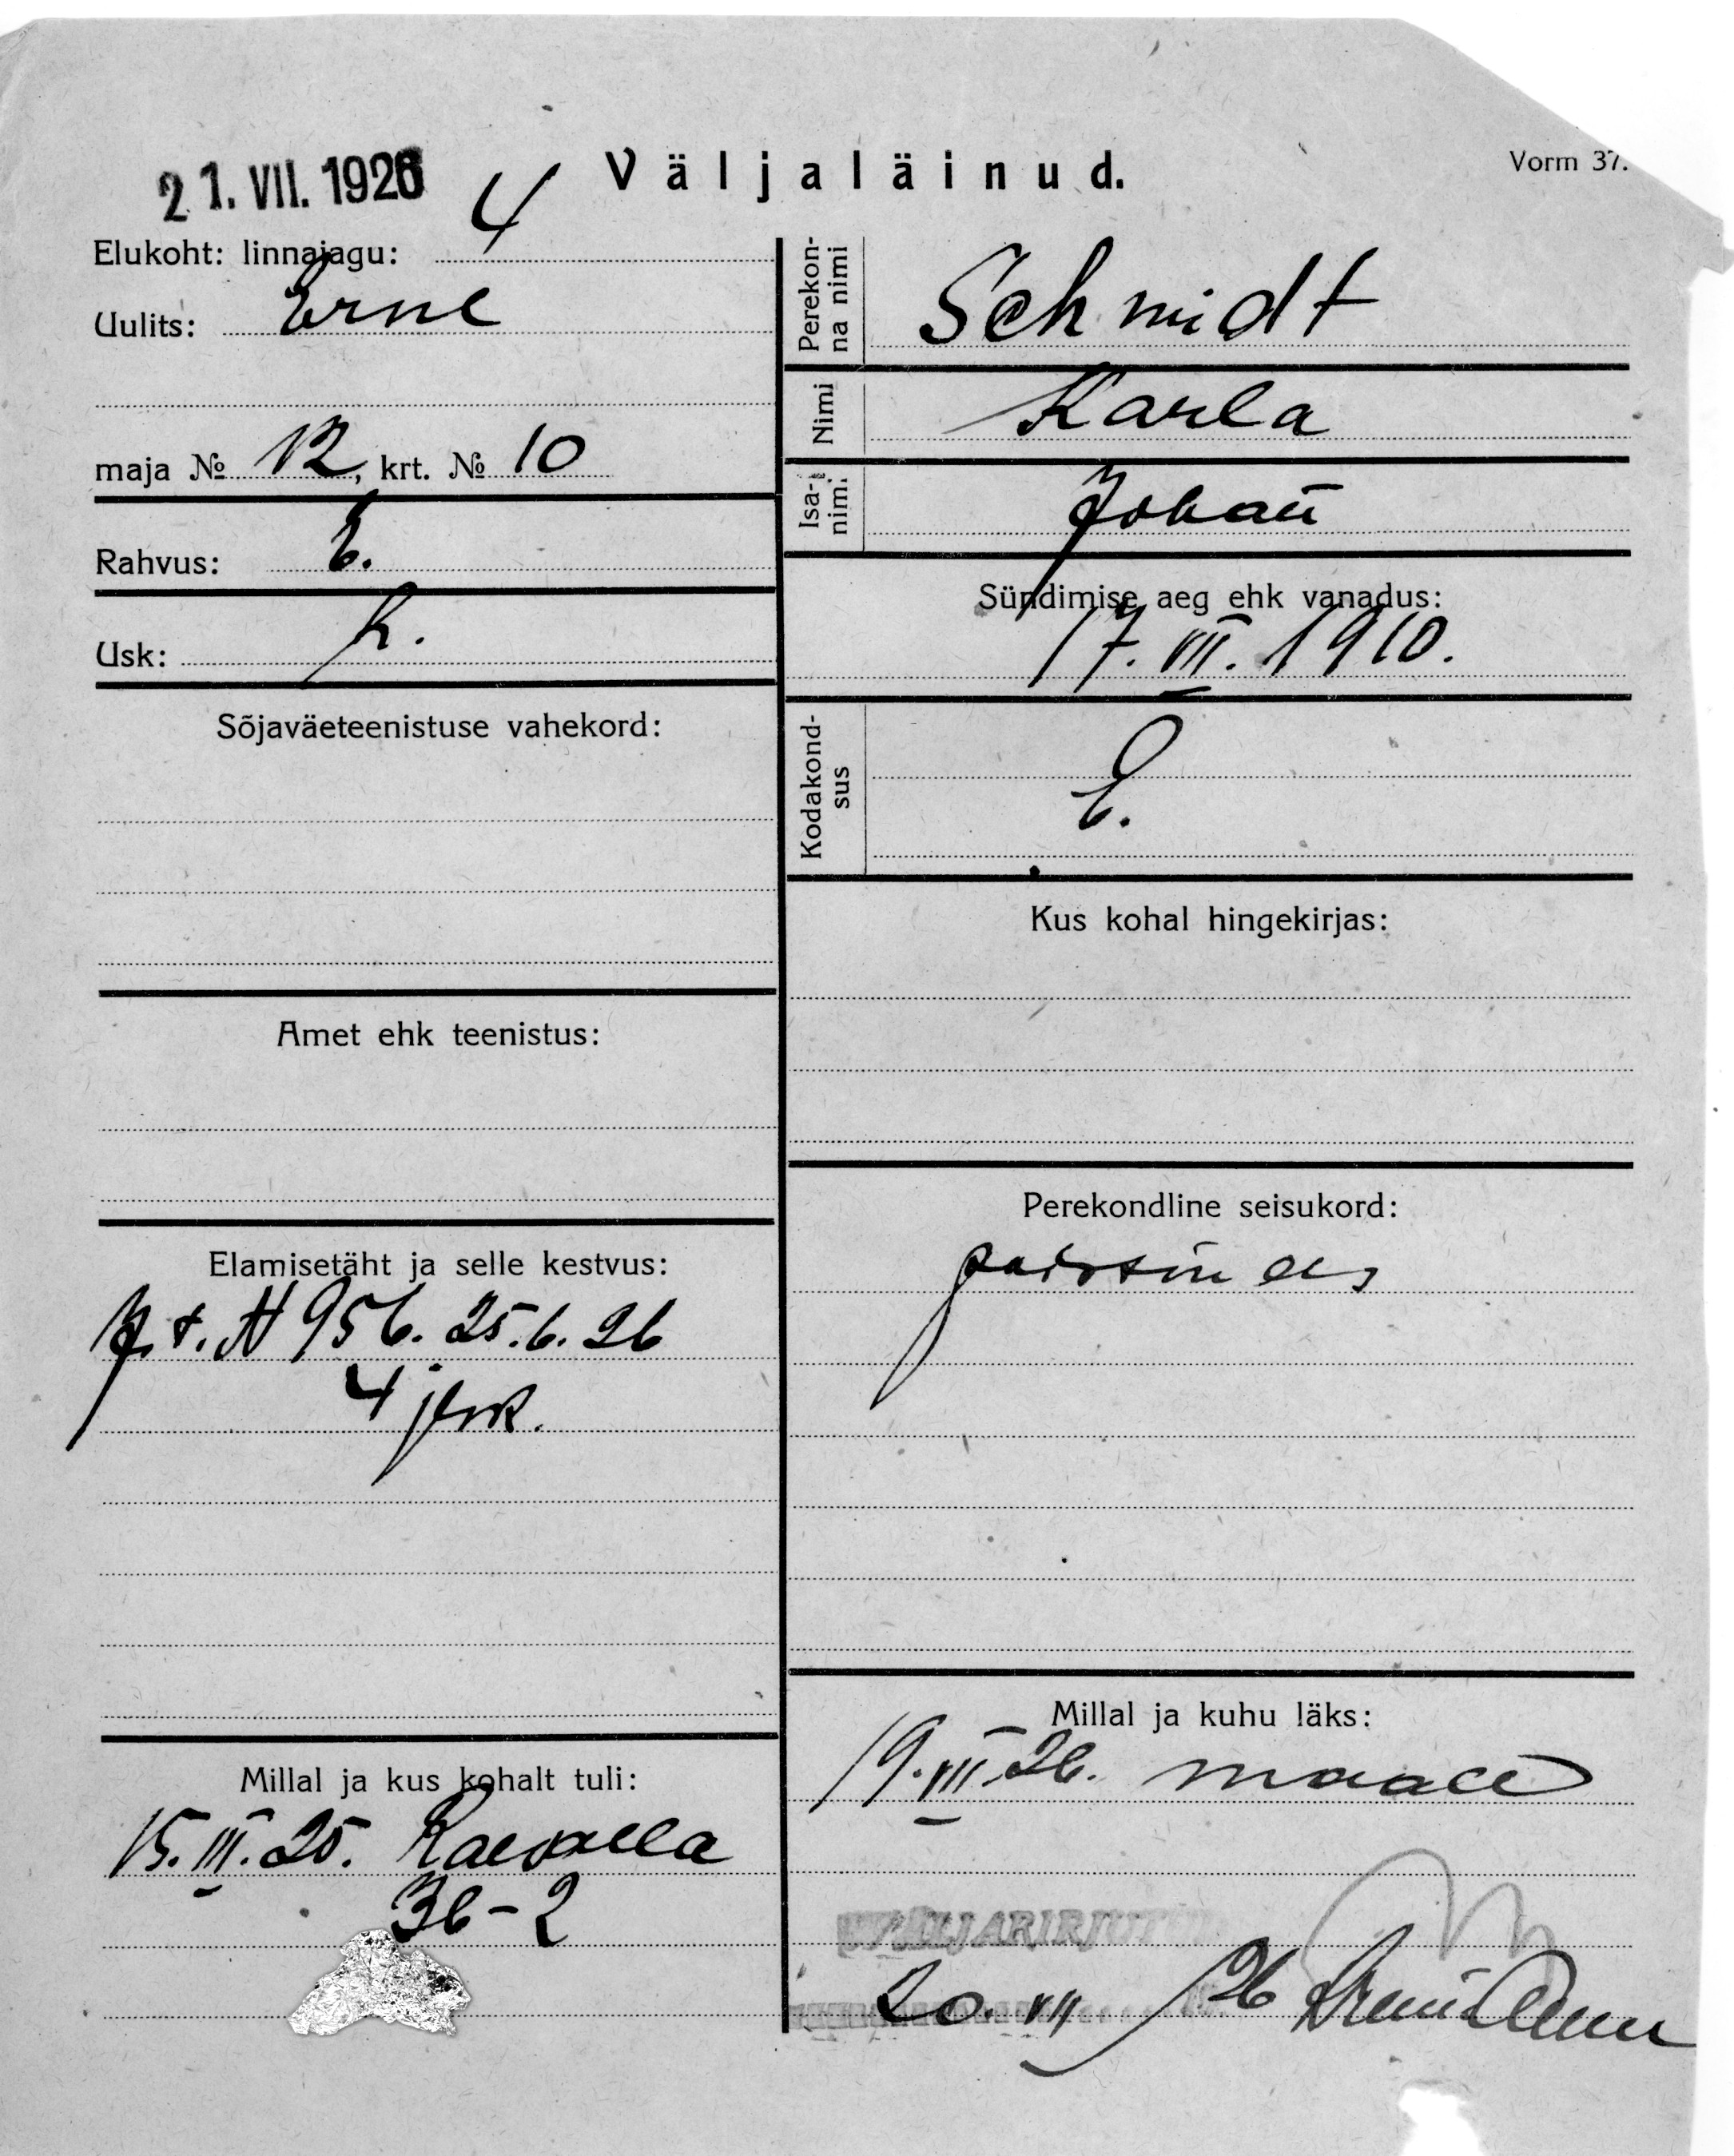 21. VII. 1926
Väljaläinud.
Vorm 37.
Elukoht: linnajagu: 4
Uulits: Erne
maja № 12, krt. № 10
Rahvus: E.
Usk: L.
Sõjaväeteenistuse vahekord:
Amet ehk teenistus:
Elamisetäht ja selle kestvus:
p. t. N 956. 25.6.26
4 jsk.
Millal ja kus kohalt tuli:
15. III. 25.
36-2
Perekonna nimi Schmidt
Nimi Karla
Isa-nimi Johan̄
Sündimise aeg ehk vanadus:
17. VII. 1910.
Kodakondsus E.
Kus kohal hingekirjas:
Perekondline seisukord:
Millal ja kuhu läks:
19. VII. 26. maale
VÄLJAKIRJUT
20. VII 26